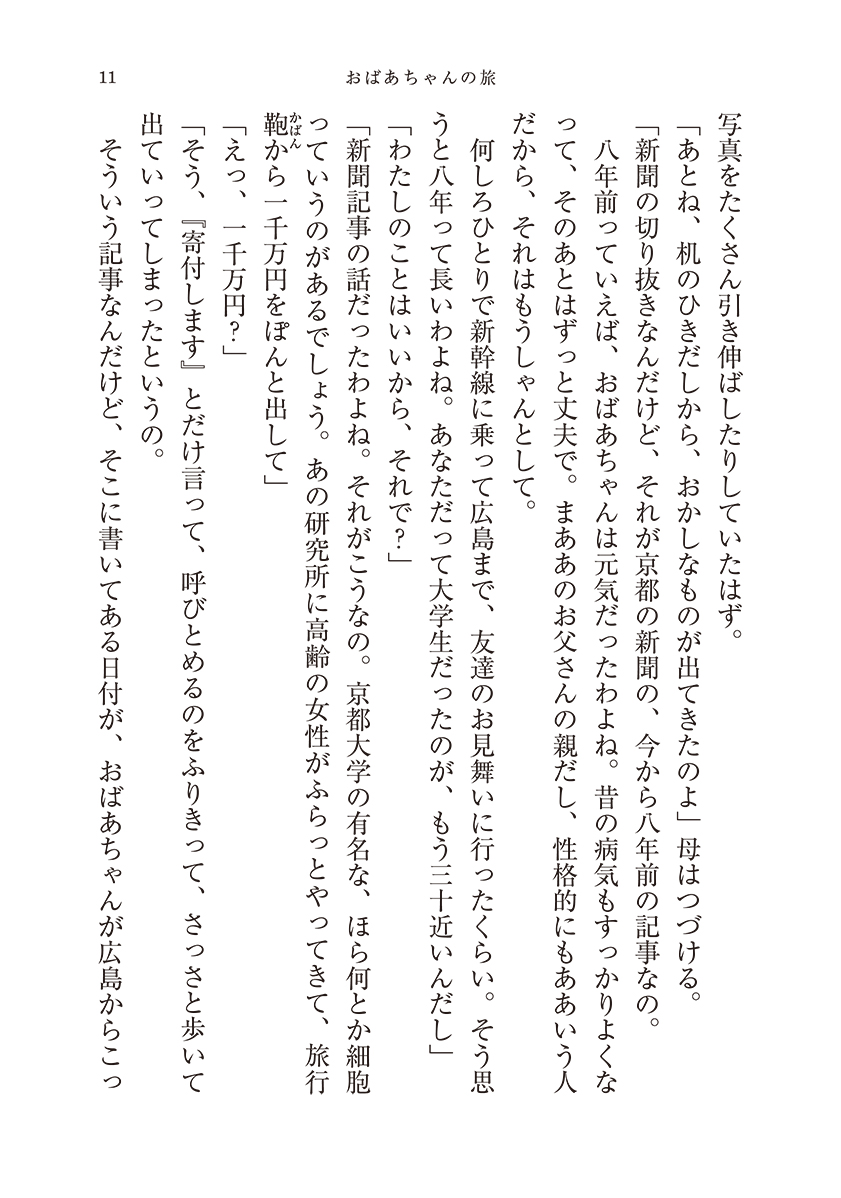 11
おばあちゃんの旅
写真をたくさん引き伸ばしたりしていたはず。
「あとね、机のひきだしから、おかしなものが出てきたのよ」母はつづける。
「新聞の切り抜きなんだけど、それが京都の新聞の、今から八年前の記事なの。
八年前っていえば、おばあちゃんは元気だったわよね。昔の病気もすっかりよくな
って、そのあとはずっと丈夫で。まああのお父さんの親だし、性格的にもああいう人
だから、それはもうしゃんとして。
何しろひとりで新幹線に乗って広島まで、友達のお見舞いに行ったくらい。そう思
うと八年って長いわよね。あなただって大学生だったのが、もう三十近いんだし」
「わたしのことはいいから、それで？」
「新聞記事の話だったわよね。それがこうなの。京都大学の有名な、ほら何とか細胞
っていうのがあるでしょう。あの研究所に高齢の女性がふらっとやってきて、旅行
鞄かばんから一千万円をぽんと出して」
「えっ、一千万円？」
「そう、『寄付します』とだけ言って、呼びとめるのをふりきって、さっさと歩いて
出ていってしまったというの。
そういう記事なんだけど、そこに書いてある日付が、おばあちゃんが広島からこっ